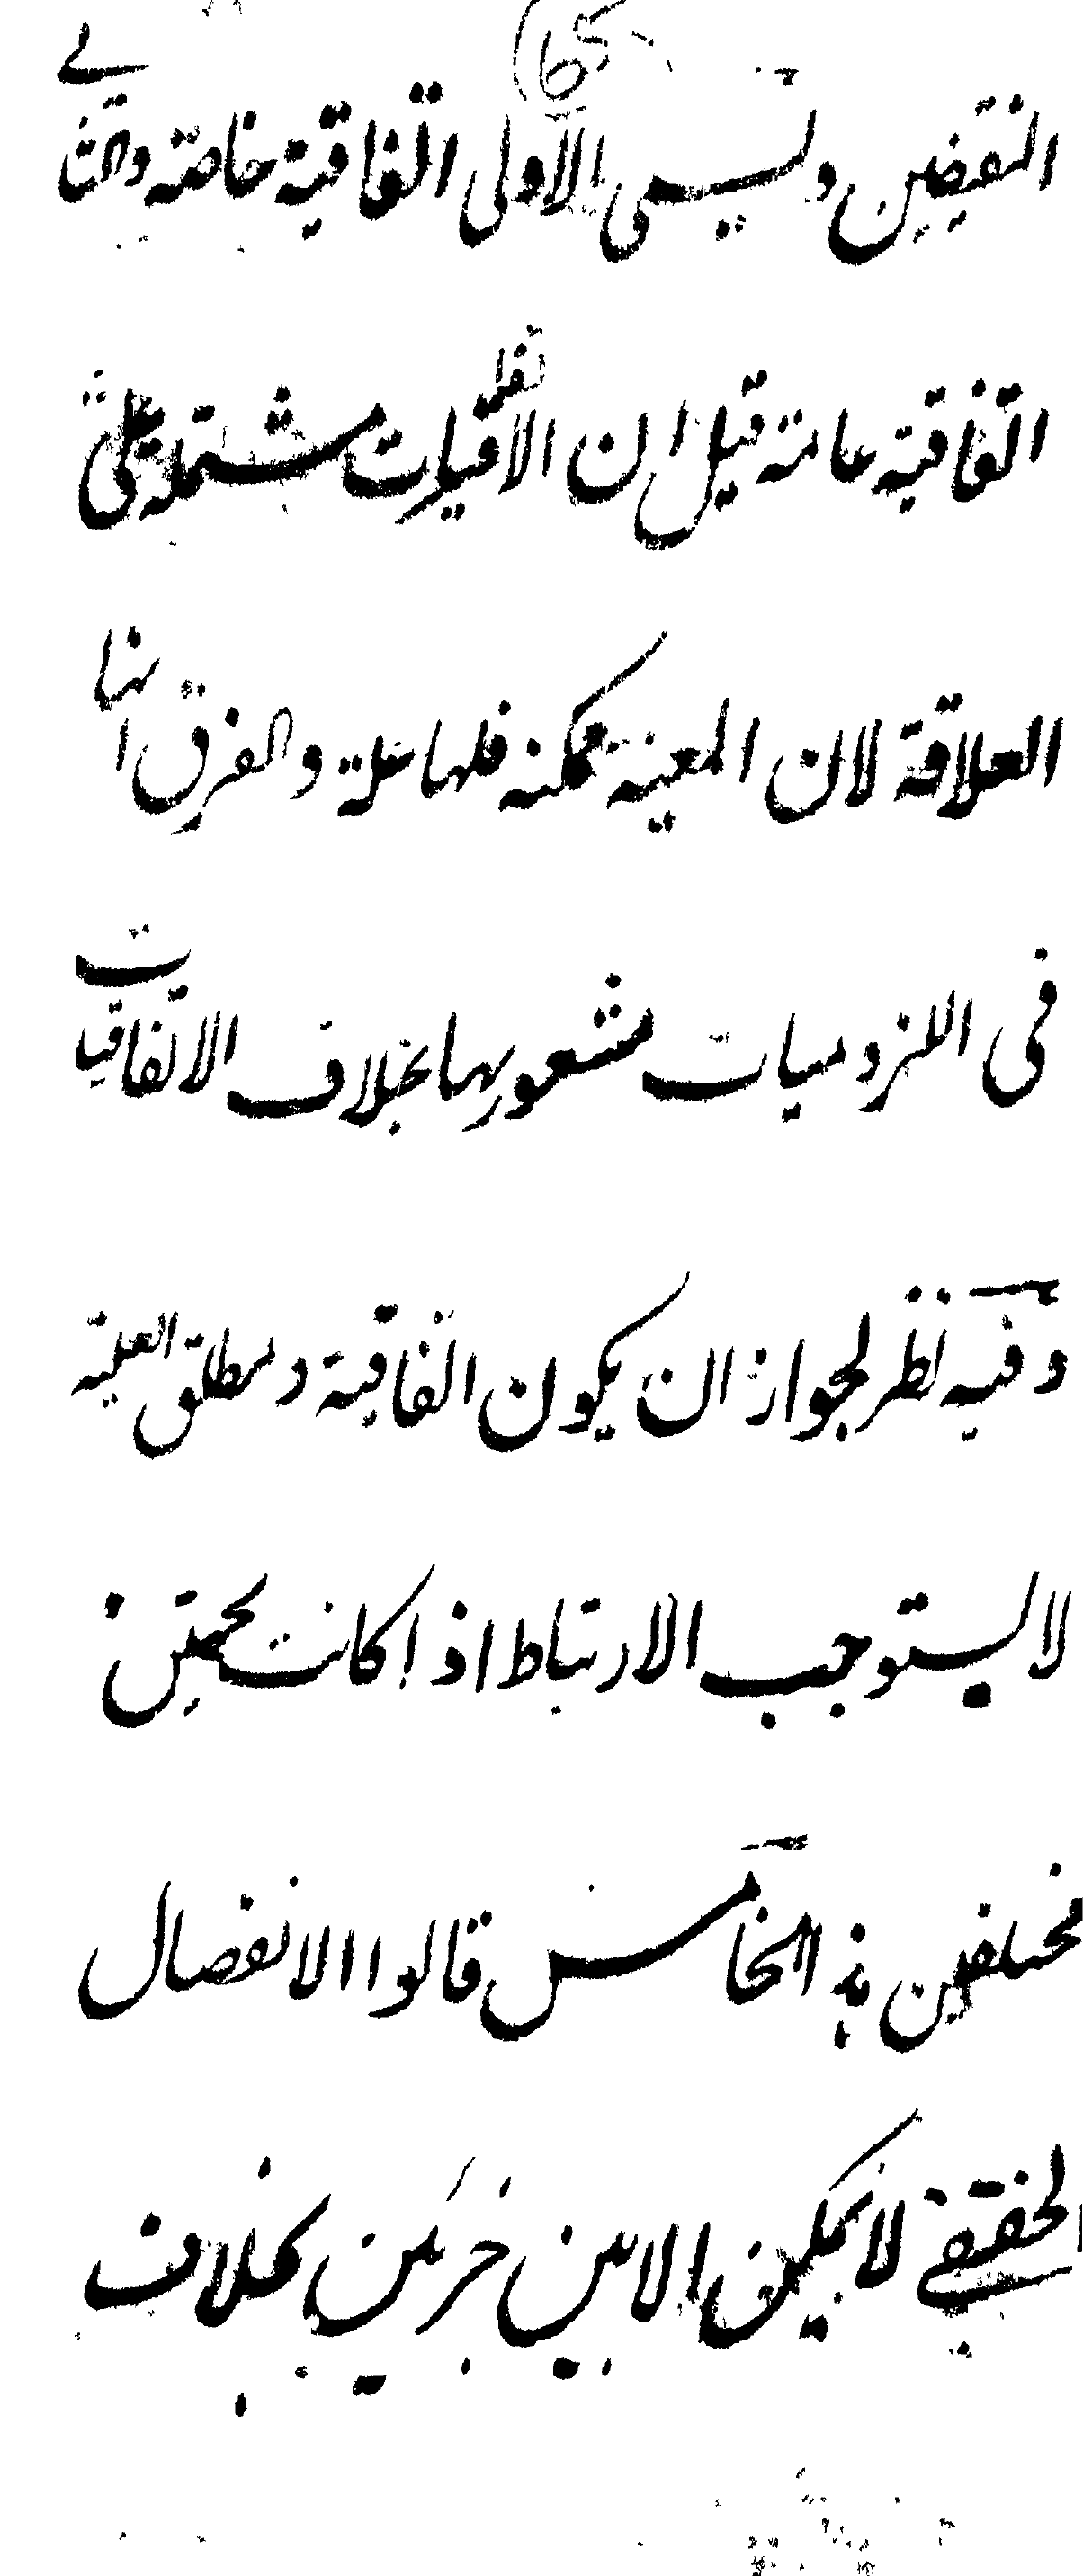 النقيضين وليسمى الاولى اتفاقية خاصة والثانية
اتفاقية عامة قيل ان الاتفاقيات مشتملة على
العلاقة لان المعية ممكنة فلها علة والفرق انها
فى اللزوميات مشعور بها بخلاف الاتفاقيات
وفيه نظر لجواز ان يكون اتفاقية ومطلق العلية
لا يستوجب الارتباط اذا كانت بجهتين
مختلفين هذا الخامس قالوا الانفصال
الحقيقے لا يمكن الا بين جزئين بخلاف